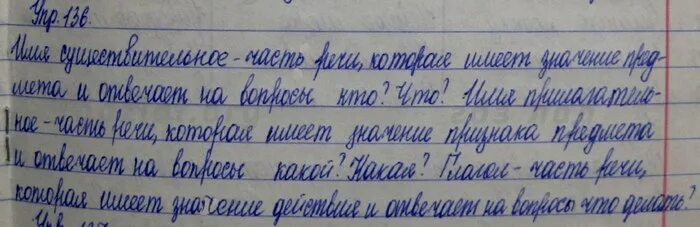 Упр. 136.
Имя существительное - часть речи, которая имеет значение пред-
мета и отвечает на вопросы кто? Что? Имя прилагатель-
ное - часть речи, которая имеет значение признака предмета
и отвечает на вопросы какой? Какая? Глагол - часть речи,
которая имеет значение действия и отвечает на вопросы что делать?